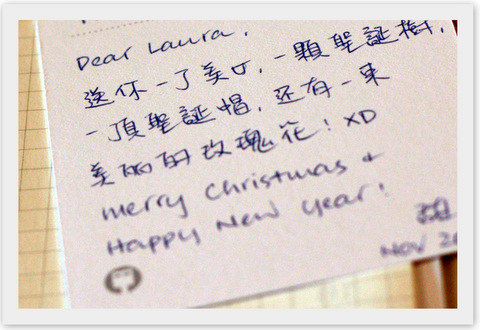 Dear Laura,
送你一个美女,一顆聖誕樹,
一頂聖誕帽,还有一束
美丽的玫瑰花! XD
merry Christmas &
Happy New Year!
Nov